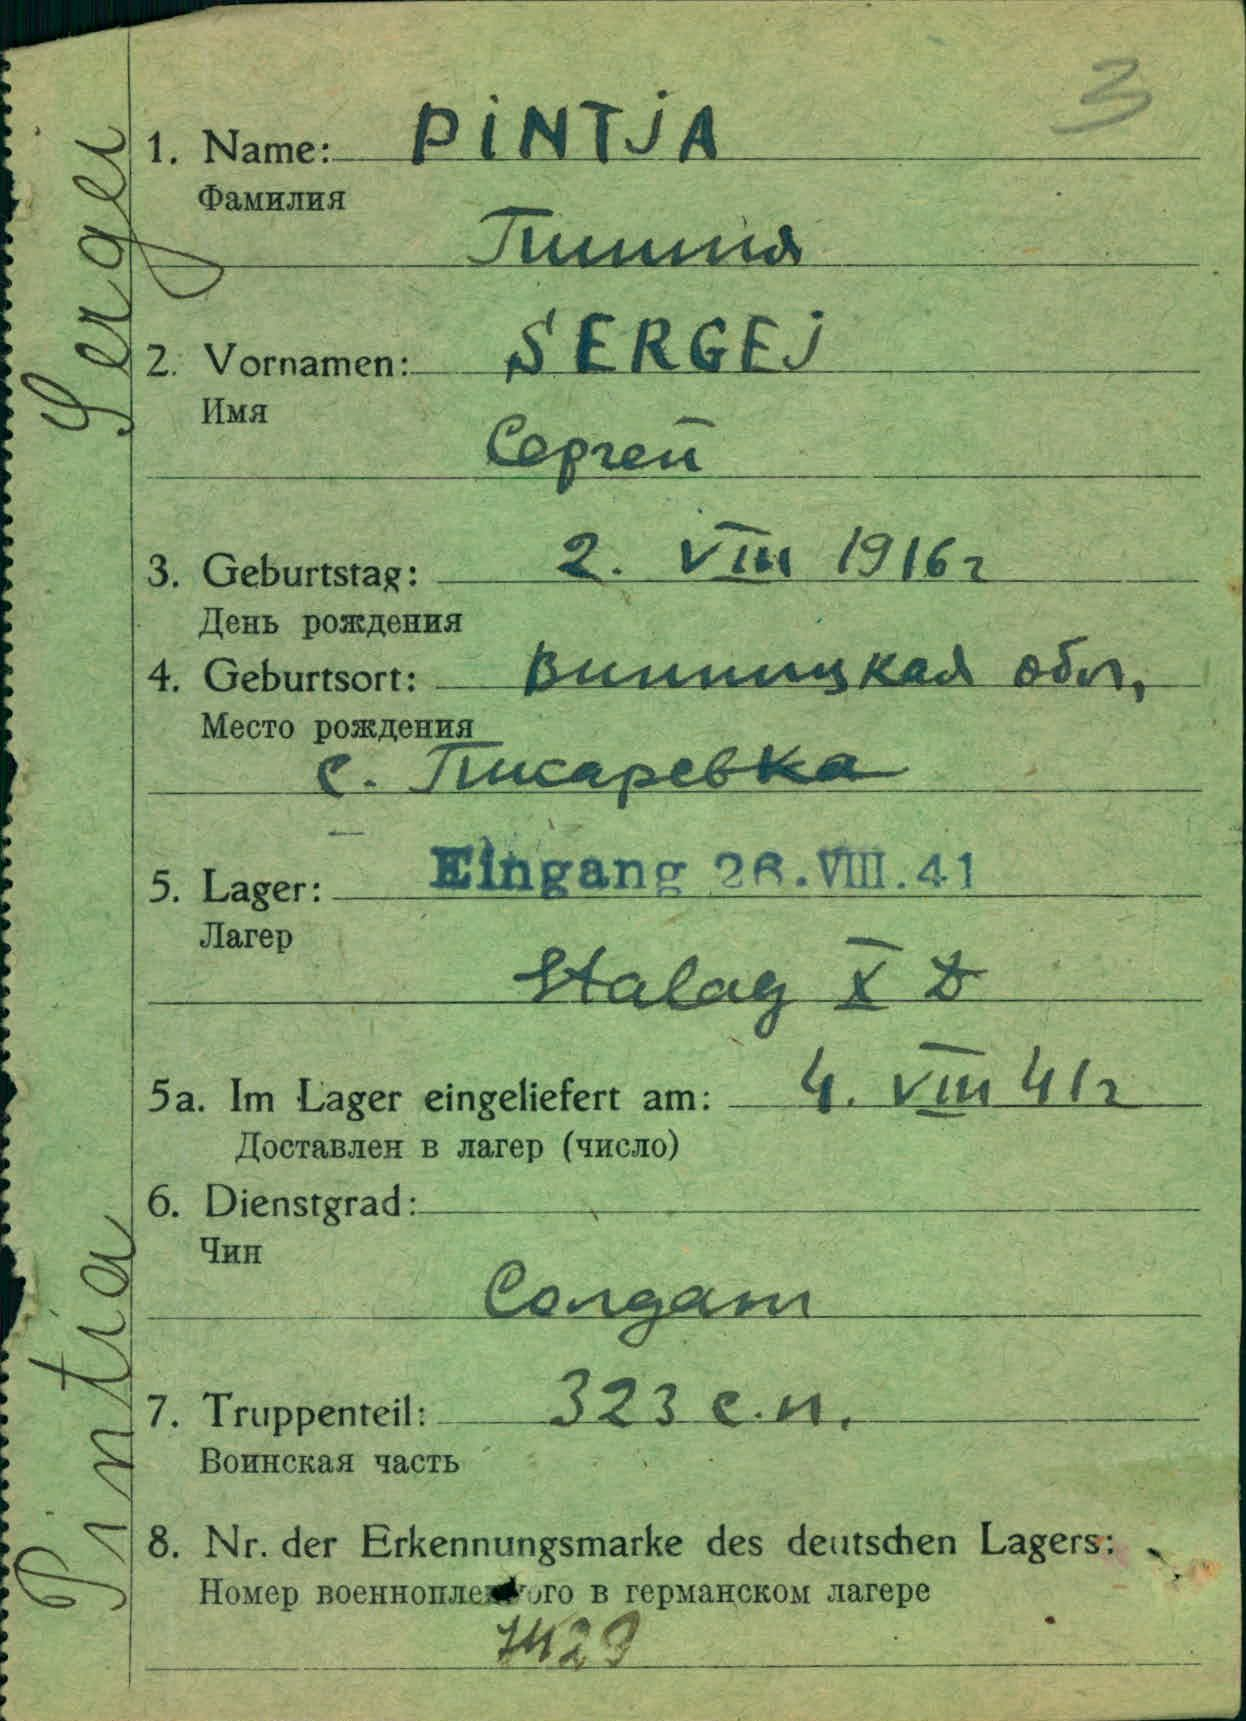 3
1. Name: PINTJA
Фамилия
Пинтя
2. Vornamen: SERGEJ
Имя
Сергей
3. Geburtstag: 2. VIII 1916г
День рождения
4. Geburtsort: Винницкая обл,
Место рождения
с. Писаревка
5. Lager: Eingang 26.VIII.41
Лагер
Stalag X D
5a. Im Lager eingeliefert am: 4. VIII 41г
Доставлен в лагер (число)
6. Dienstgrad:
Чин
Солдат
7. Truppenteil: 323 с.п.
Воинская часть
8. Nr. der Erkennungsmarke des deutschen Lagers:
Номер военнопленного в германском лагере
7429
Pintia Sergei